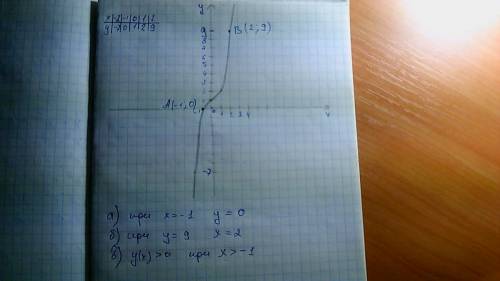 x | -2 | -1 | 0 | 1 | 2
y | -7 | 0 | 1 | 2 | 9
y
9
B(2; 9)
A(-1; 0)
1 2 3 4
x
-7
а) при x=-1 y=0
б) при y=9 x=2
в) y(x)>0 при x>-1